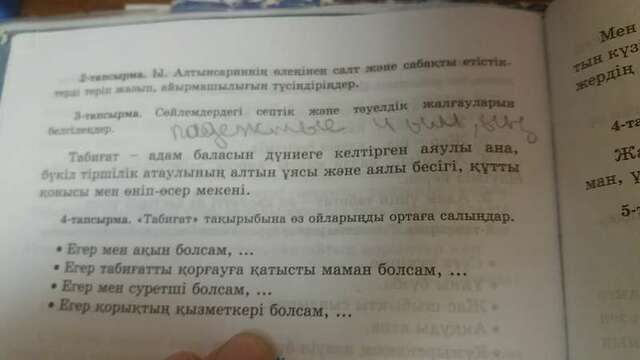 2-тапсырма. Ы. Алтынсариннің өлеңінен салт және сабақты етістік-
терді теріп жазып, айырмашылығын түсіндіріңдер.
3-тапсырма. Сөйлемдердегі септік және тәуелдік жалғауларын
белгілеңдер.
падежные и
Табиғат – адам баласын дүниеге келтірген аяулы ана,
бүкіл тіршілік атаулының алтын ұясы және аялы бесігі, құтты
қонысы мен өніп-өсер мекені.
4-тапсырма. «Табиғат» тақырыбына өз ойларыңды ортаға салыңдар.
• Егер мен ақын болсам, ...
• Егер табиғатты қорғауға қатысты маман болсам, ...
• Егер мен суретші болсам, ...
• Егер қорықтың қызметкері болсам, ...
Мен
тын күз
жердің
4-та
Жа
ман, ұ
5-т